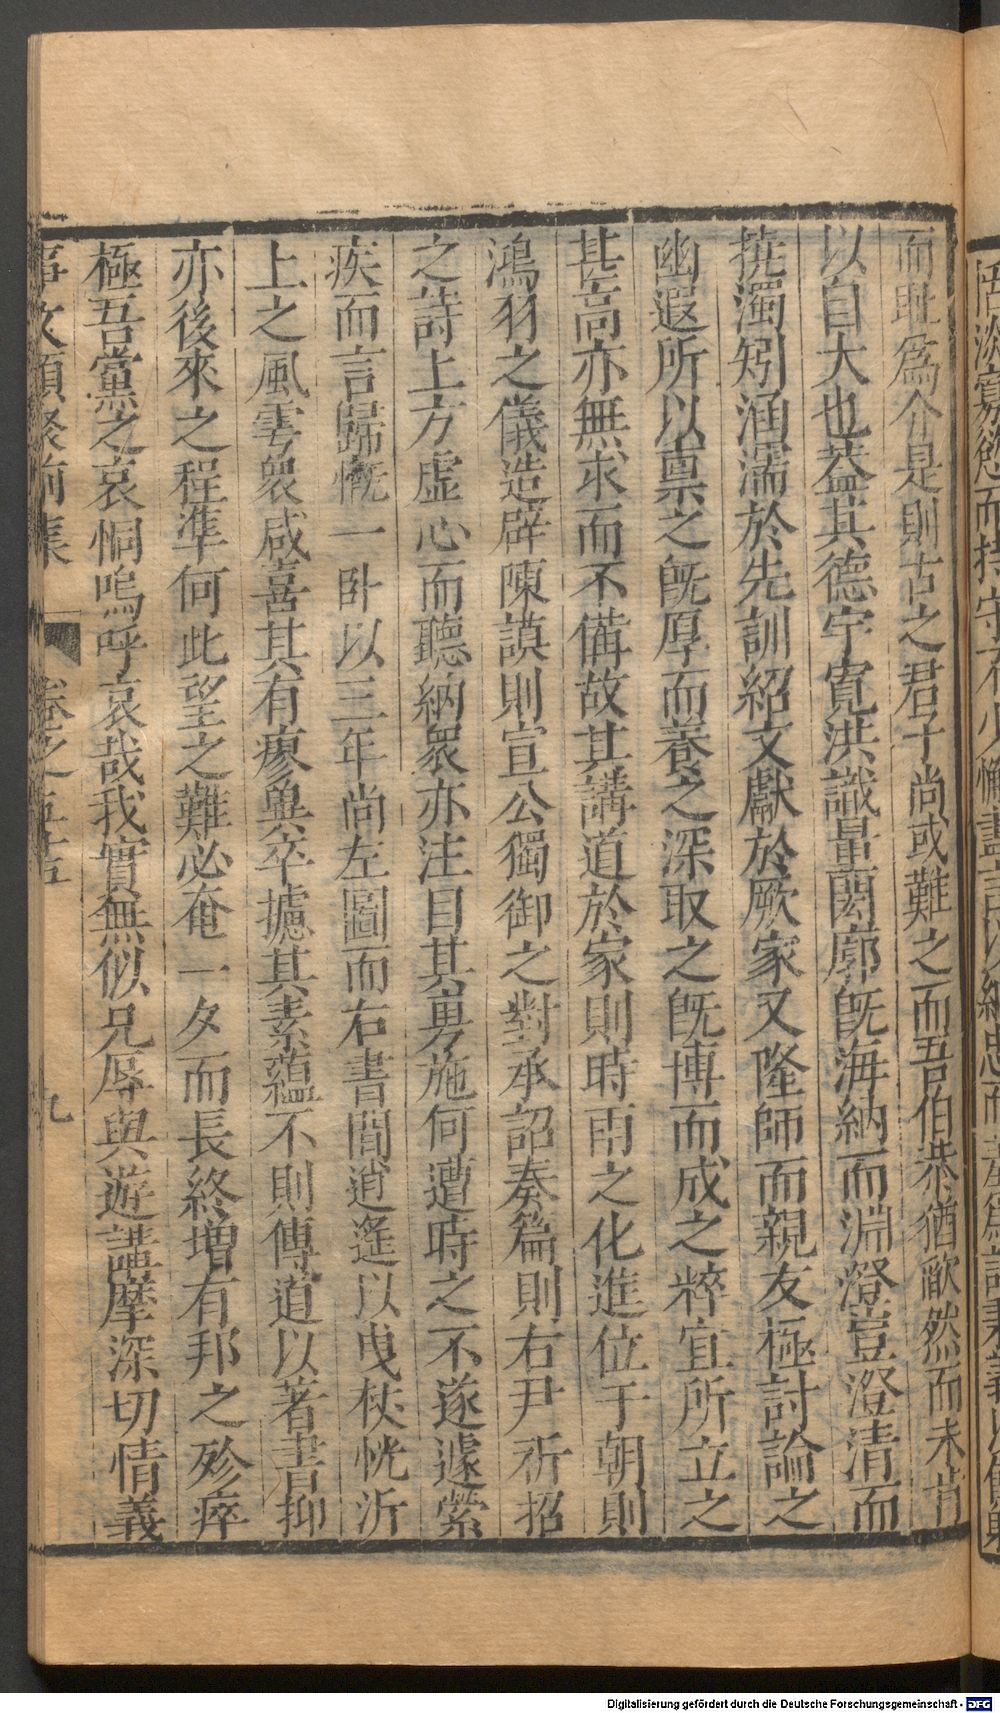 而恥爲介是則古之君子尚或難之而吾伯恭猶歉然而未肯
以自大也蓋其德宇寬洪識量閎廓旣海納而淵澄豈澄清而
撓濁矧涵濡於先訓紹文獻於厥家又隆師而親友極討論之
幽遐所以禀之旣厚而養之深取之旣博而成之粹宜所立之
甚高亦無求而不備故其講道於家則時雨之化進位于朝則
鴻羽之儀造辟陳謨則宣公獨御之對承詔奏篇則右尹祈招
之詩上方虛心而聽納衆亦注目其勇施何遭時之不遂遽縈
疾而言歸慨一卧以三年尚左圖而右書閒逍遙以曳杖恍沂
上之風雩衆咸喜其有瘳兾卒攄其素蘊不則傳道以著書抑
亦後來之程準何此望之難必奄一夕而長終增有邦之殄瘁
極吾黨之哀恫嗚呼哀哉我實無似兄辱與遊講摩深切情義
事文類聚前集 卷之五十五 九
Digitalisierung gefördert durch die Deutsche Forschungsgemeinschaft - DFG